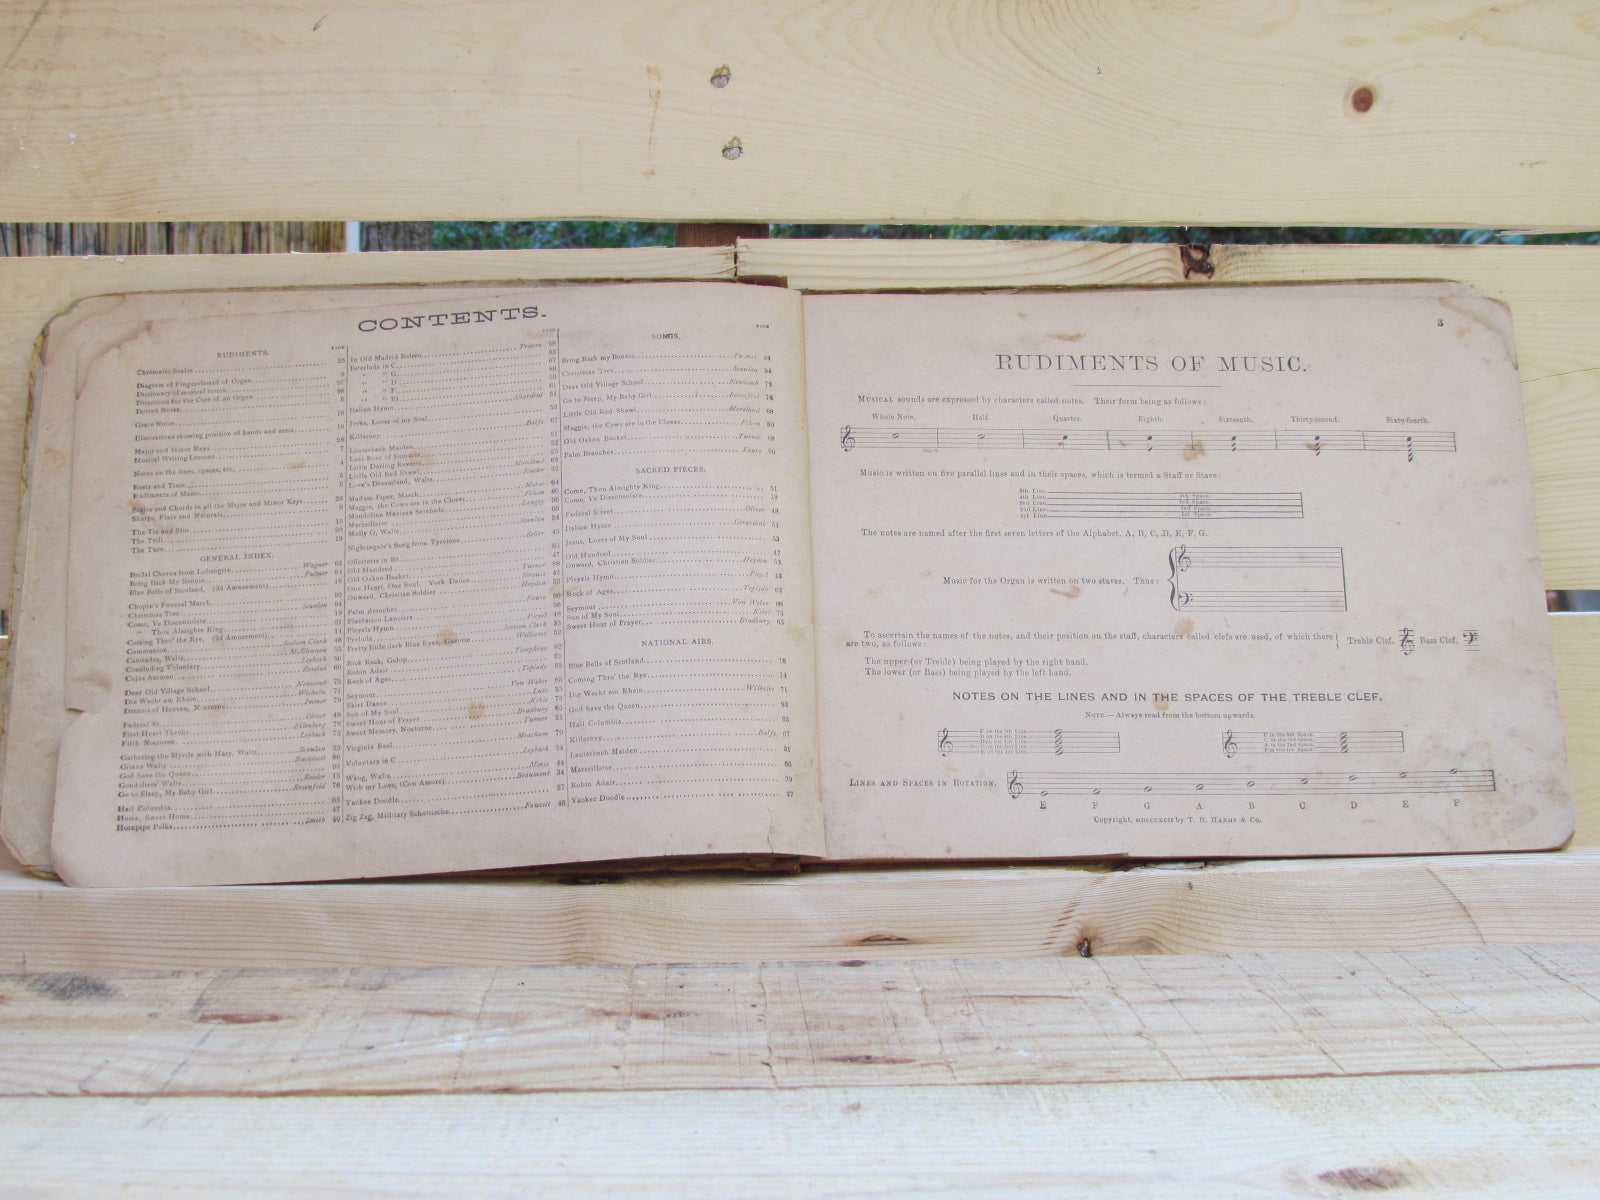 CONTENTS.
PAGE
RUDIMENTS.
Chromatic Scales 25
Diagram of Fingerboard of Organ 9
Dictionary of musical terms 97
Directions for the Care of an Organ 98
Dotted Notes 6
Grace Notes 16
Illustrations showing position of hands and arms 10
Major and Minor Keys 26
Musical Writing Lessons 7
Notes on the lines, spaces, etc. 4
Rests and Time 5
Rudiments of Music 3
Scales and Chords in all the Major and Minor Keys 26
Sharps, Flats and Naturals 9
The Tie and Slur 15
The Trill 20
The Turn 19
GENERAL INDEX.
Bridal Chorus from Lohengrin Wagner 62
Bring Back My Bonnie Fulmer 84
Blue Bells of Scotland, (3d Amusement) 16
Chopin's Funeral March 92
Christmas Tree Scanlan 94
Come, Ye Disconsolate 19
" Thou Almighty King 51
Coming Thro' the Rye, (2d Amusement) 14
Communion Scotson Clark 48
Comrades, Waltz McGlennon 55
Concluding Voluntary Leybach 50
Cujus Animan Rossini 60
Dear Old Village School Newcomb 72
Die Wacht am Rhein Wilhelm 71
Dreams of Heaven, Nocturne Immer 79
Federal St. Oliver 48
First Heart Throbs Eilenberg 78
Fifth Nocturne Leybach 75
Gathering the Myrtle with Mary, Waltz Scanlan 53
Gitana Waltz Bucalossi 86
God Save the Queen 93
Gondoliers' Waltz Roeder 15
Go to Sleep, My Baby Girl Rosenfeld 76
Hail Columbia 63
Home, Sweet Home 47
Hornpipe Polka Smith 40
PAGE
In Old Madrid Bolero Trotere 58
Interlude in C 85
" " G 67
" " D
" " F
" " E♭ 61
Italian Hymn Giardini 51
Jesus, Lover of my Soul 53
Killarney Balfe 67
Lauterbach Maiden 51
Last Rose of Summer 22
Little Darling Reverie
Little Old Red Shawl Moreland 68
Love's Dreamland, Waltz Roeder 39
Madam Piper, March Morse 64
Maggie, the Cows are in the Clover Filson 80
Mandolina Mexican Serenade Langey 96
Marseillaise 66
Molly O, Waltz Scanlan 54
Nightingale's Song from Tyrolene Zeller 45
Offertoire in B♭ 83
Old Hundred 47
Old Oaken Bucket Turner 88
One Heart, One Soul. York Dance Strauss 42
Onward, Christian Soldier Hayden 53
Palm Branches Faure 90
Plantation Lanciers 56
Pleyels Hymn Pleyel 43
Prelude Scotson Clark 35
Pretty little dark Blue Eyes, Gavotte Williams 52
Rick Rack, Galop Tompkins 82
Robin Adair 39
Rock of Ages Toplady 63
Seymour Von Weber 68
Skirt Dance Lutz 35
Sun of My Soul Keble 75
Sweet Hour of Prayer Bradbury 65
Sweet Memory, Nocturne Turner 31
Virginia Reel Meacham 70
Voluntary in C Leybach 24
Wang, Waltz Morse 44
With my Love, (Con Amore) Beaumont 34
Yankee Doodle 37
Zig Zag, Military Schottische Fawcett 46
PAGE
SONGS.
Bring Back my Bonnie Fulmer 84
Christmas Tree Scanlan 94
Dear Old Village School Newcomb 72
Go to Sleep, My Baby Girl Rosenfeld 76
Little Old Red Shawl Moreland 68
Maggie, the Cows are in the Clover Filson 80
Old Oaken Bucket Turner 88
Palm Branches Faure 90
SACRED PIECES.
Come, Thou Almighty King 51
Come, Ye Disconsolate 19
Federal Street Oliver 48
Italian Hymn Girardini 51
Jesus, Lover of My Soul 53
Old Hundred 47
Onward, Christian Soldier Hayden 53
Pleyels Hymn Pleyel 43
Rock of Ages Toplady 63
Seymour Von Weber 68
Sun of My Soul Kebel 75
Sweet Hour of Prayer Bradbury 65
NATIONAL AIRS.
Blue Bells of Scotland 16
Coming Thro' the Rye 14
Die Wacht am Rhein Wilhelm 71
God Save the Queen 93
Hail Columbia 63
Killarney Balfe 67
Lauterbach Maiden 51
Marseillaise 66
Robin Adair 39
Yankee Doodle 37
3
RUDIMENTS OF MUSIC.
MUSICAL sounds are expressed by characters called notes. Their form being as follows:
Whole Note. Half. Quarter. Eighth. Sixteenth. Thirty-second. Sixty-fourth.
Music is written on five parallel lines and in their spaces, which is termed a Staff or Stave:
5th Line
4th Line 4th Space.
3rd Line 3rd Space.
2nd Line 2nd Space.
1st Line 1st Space.
The notes are named after the first seven letters of the Alphabet, A, B, C, D, E, F, G.
Music for the Organ is written on two staves. Thus:
To ascertain the names of the notes, and their position on the staff, characters called clefs are used, of which there
are two, as follows: Treble Clef. Bass Clef.
The upper (or Treble) being played by the right hand.
The lower (or Bass) being played by the left hand.
NOTES ON THE LINES AND IN THE SPACES OF THE TREBLE CLEF.
NOTE.—Always read from the bottom upwards.
F on the 5th Line.
D on the 4th Line.
B on the 3rd Line.
G on the 2nd Line.
E on the 1st Line.
E in the 4th Space.
C in the 3rd Space.
A in the 2nd Space.
F in the 1st Space.
LINES AND SPACES IN ROTATION.
E F G A B C D E F
Copyright, MDCCCXCII by T. B. HARMS & CO.